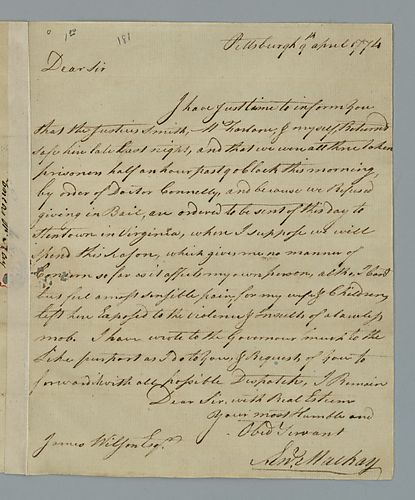 1st 181
Pittsburgh 9th april 1774
Dear Sir
I have Just time to inform you
that the Justices Smith, McFarlane, & myself Returned
safe here late last night, and that we were all three taken
prisoners half an hour past 9 o Clock this morning,
by order of Doctor Connelly, and because we Refused
giving in Bail, are ordered to be sent of this day to
Stentown in Virginia, where I suppose we will
spend this season, which gives me no manner of
Concern so far as it affects my own person, altho, I Can
but feel a most sensible pain for my wife & Children
left here Exposed to the violence & Insults of a lawless
mob. I have wrote to the Governour much to the
Like purport as I do to you, & Request of you to
forward with all possible Despatch, I Remain
Dear Sir, with Real Esteem
Your most Humble and
Obed Servant
James Wilson Esqr.
Aenes Mackay